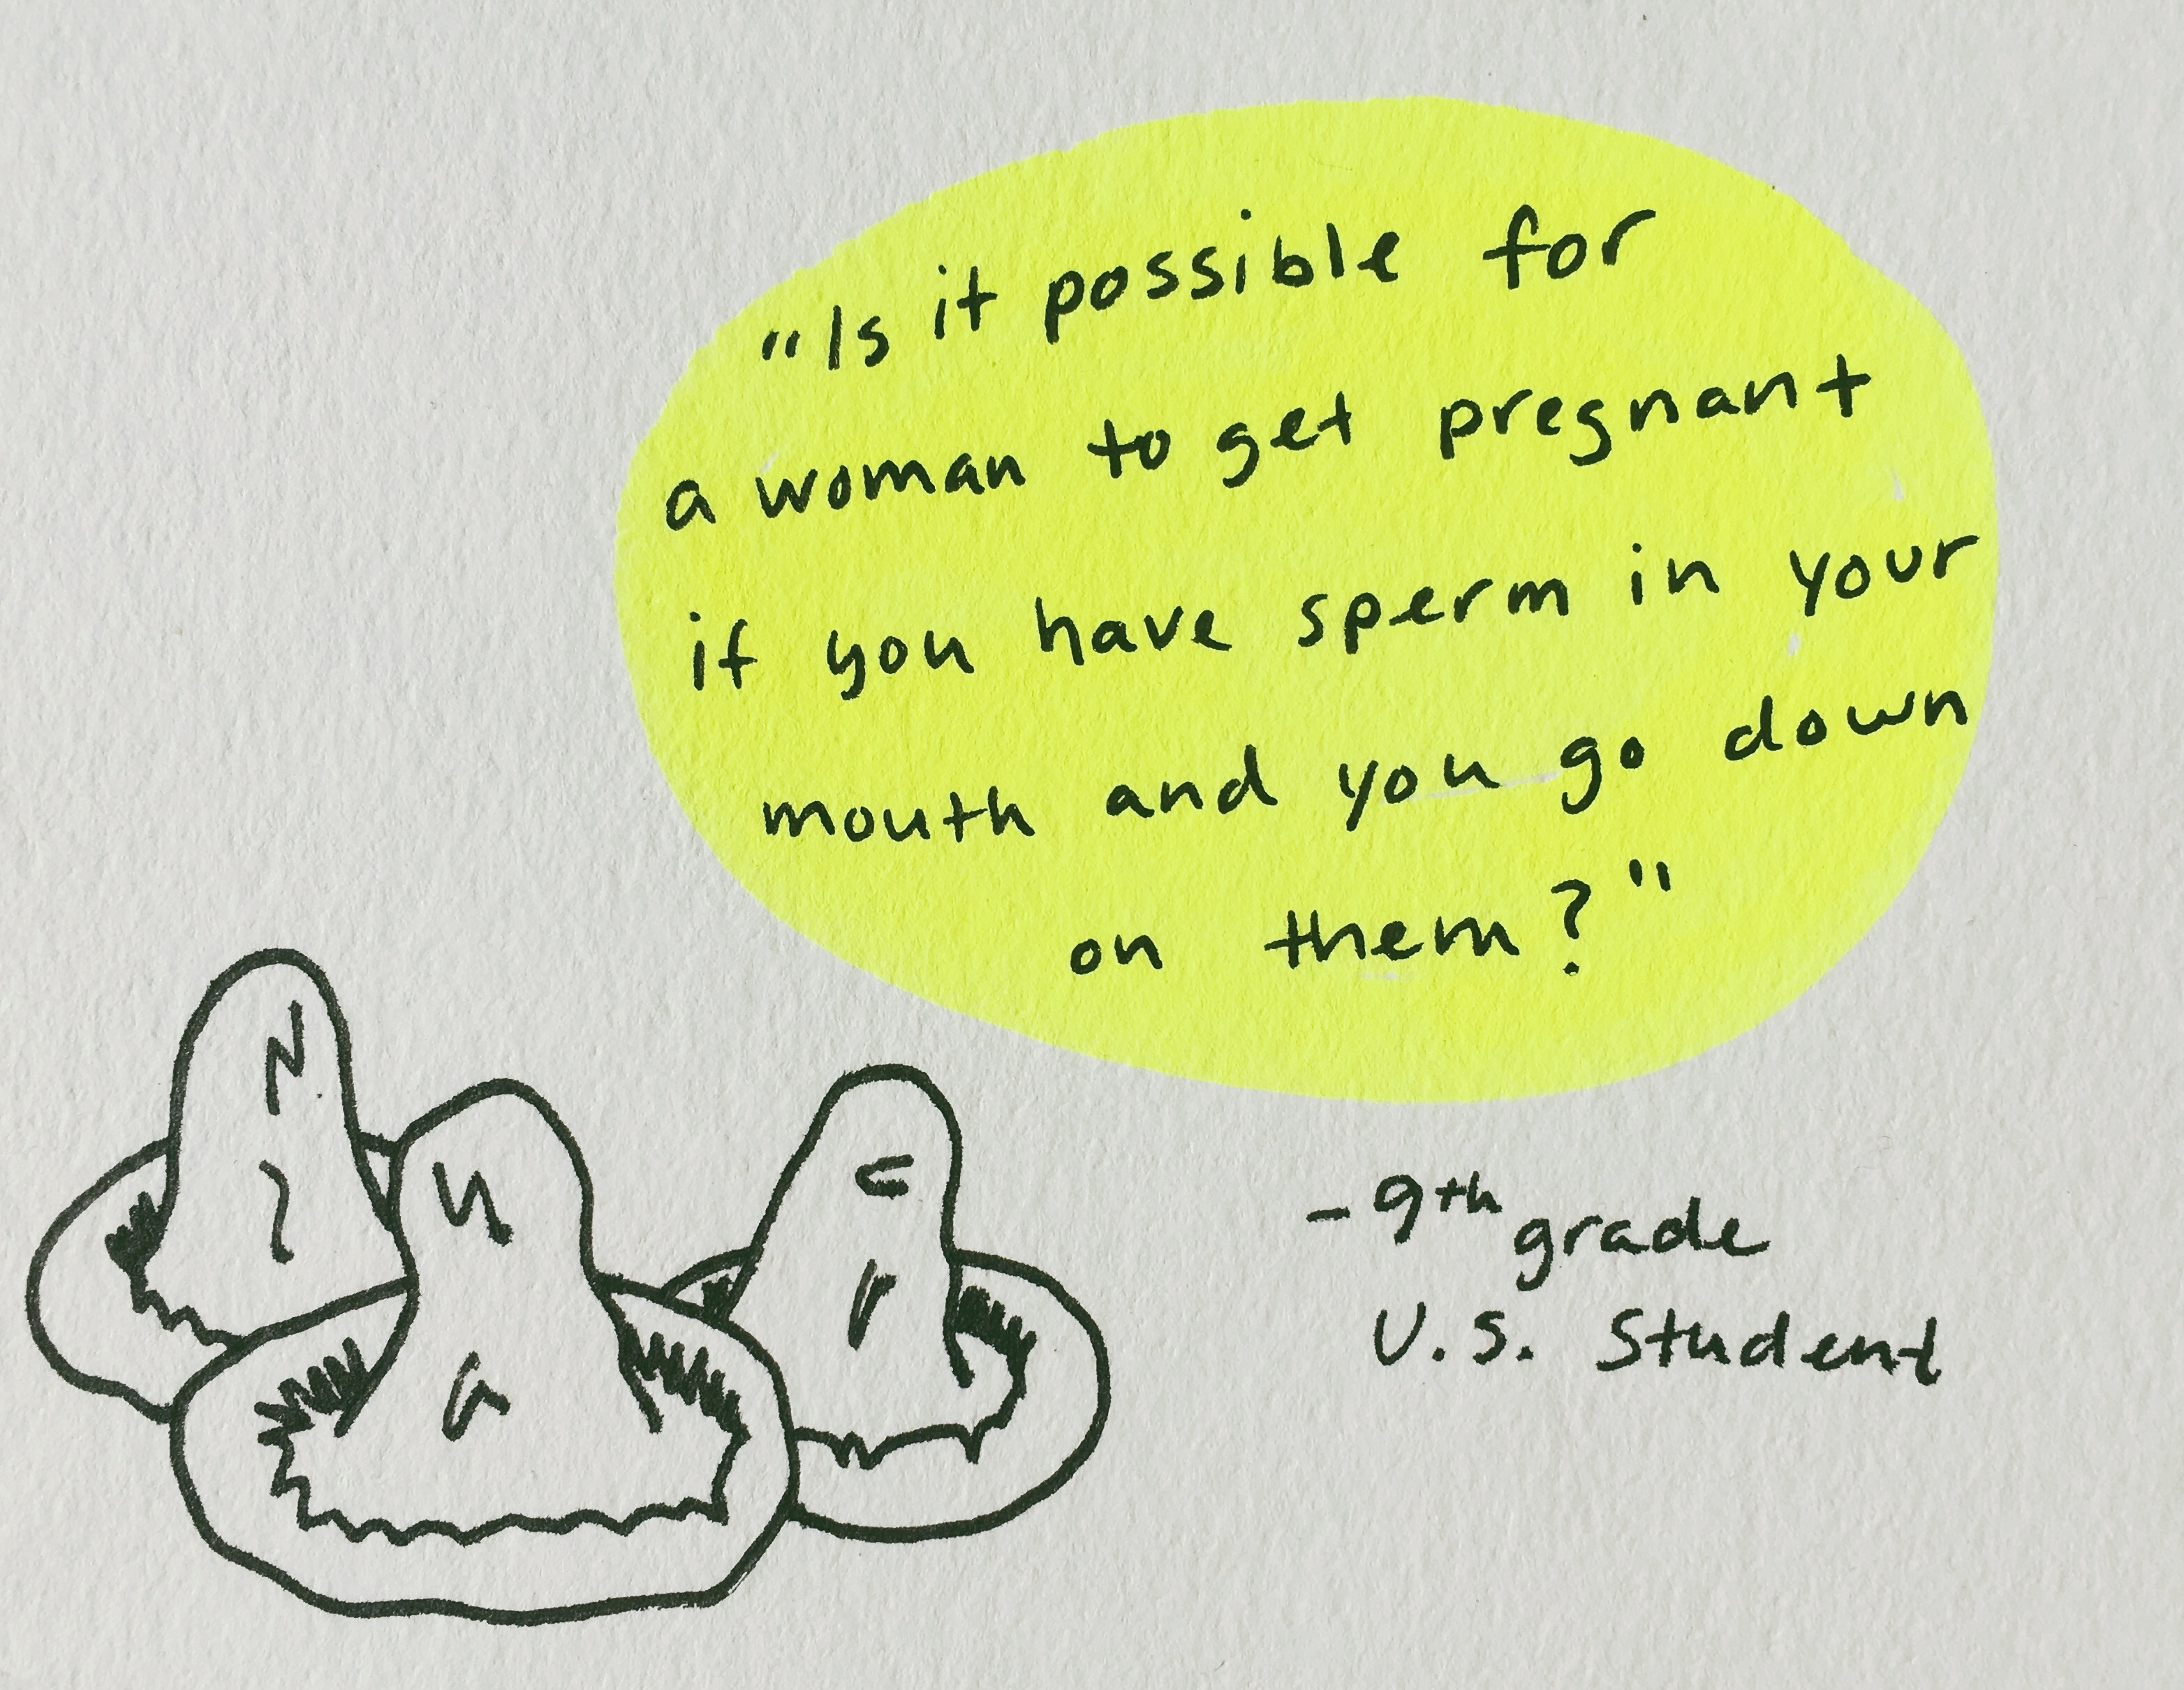 "Is it possible for
a woman to get pregnant
if you have sperm in your
mouth and you go down
on them?"
-9th grade
U.S. Student